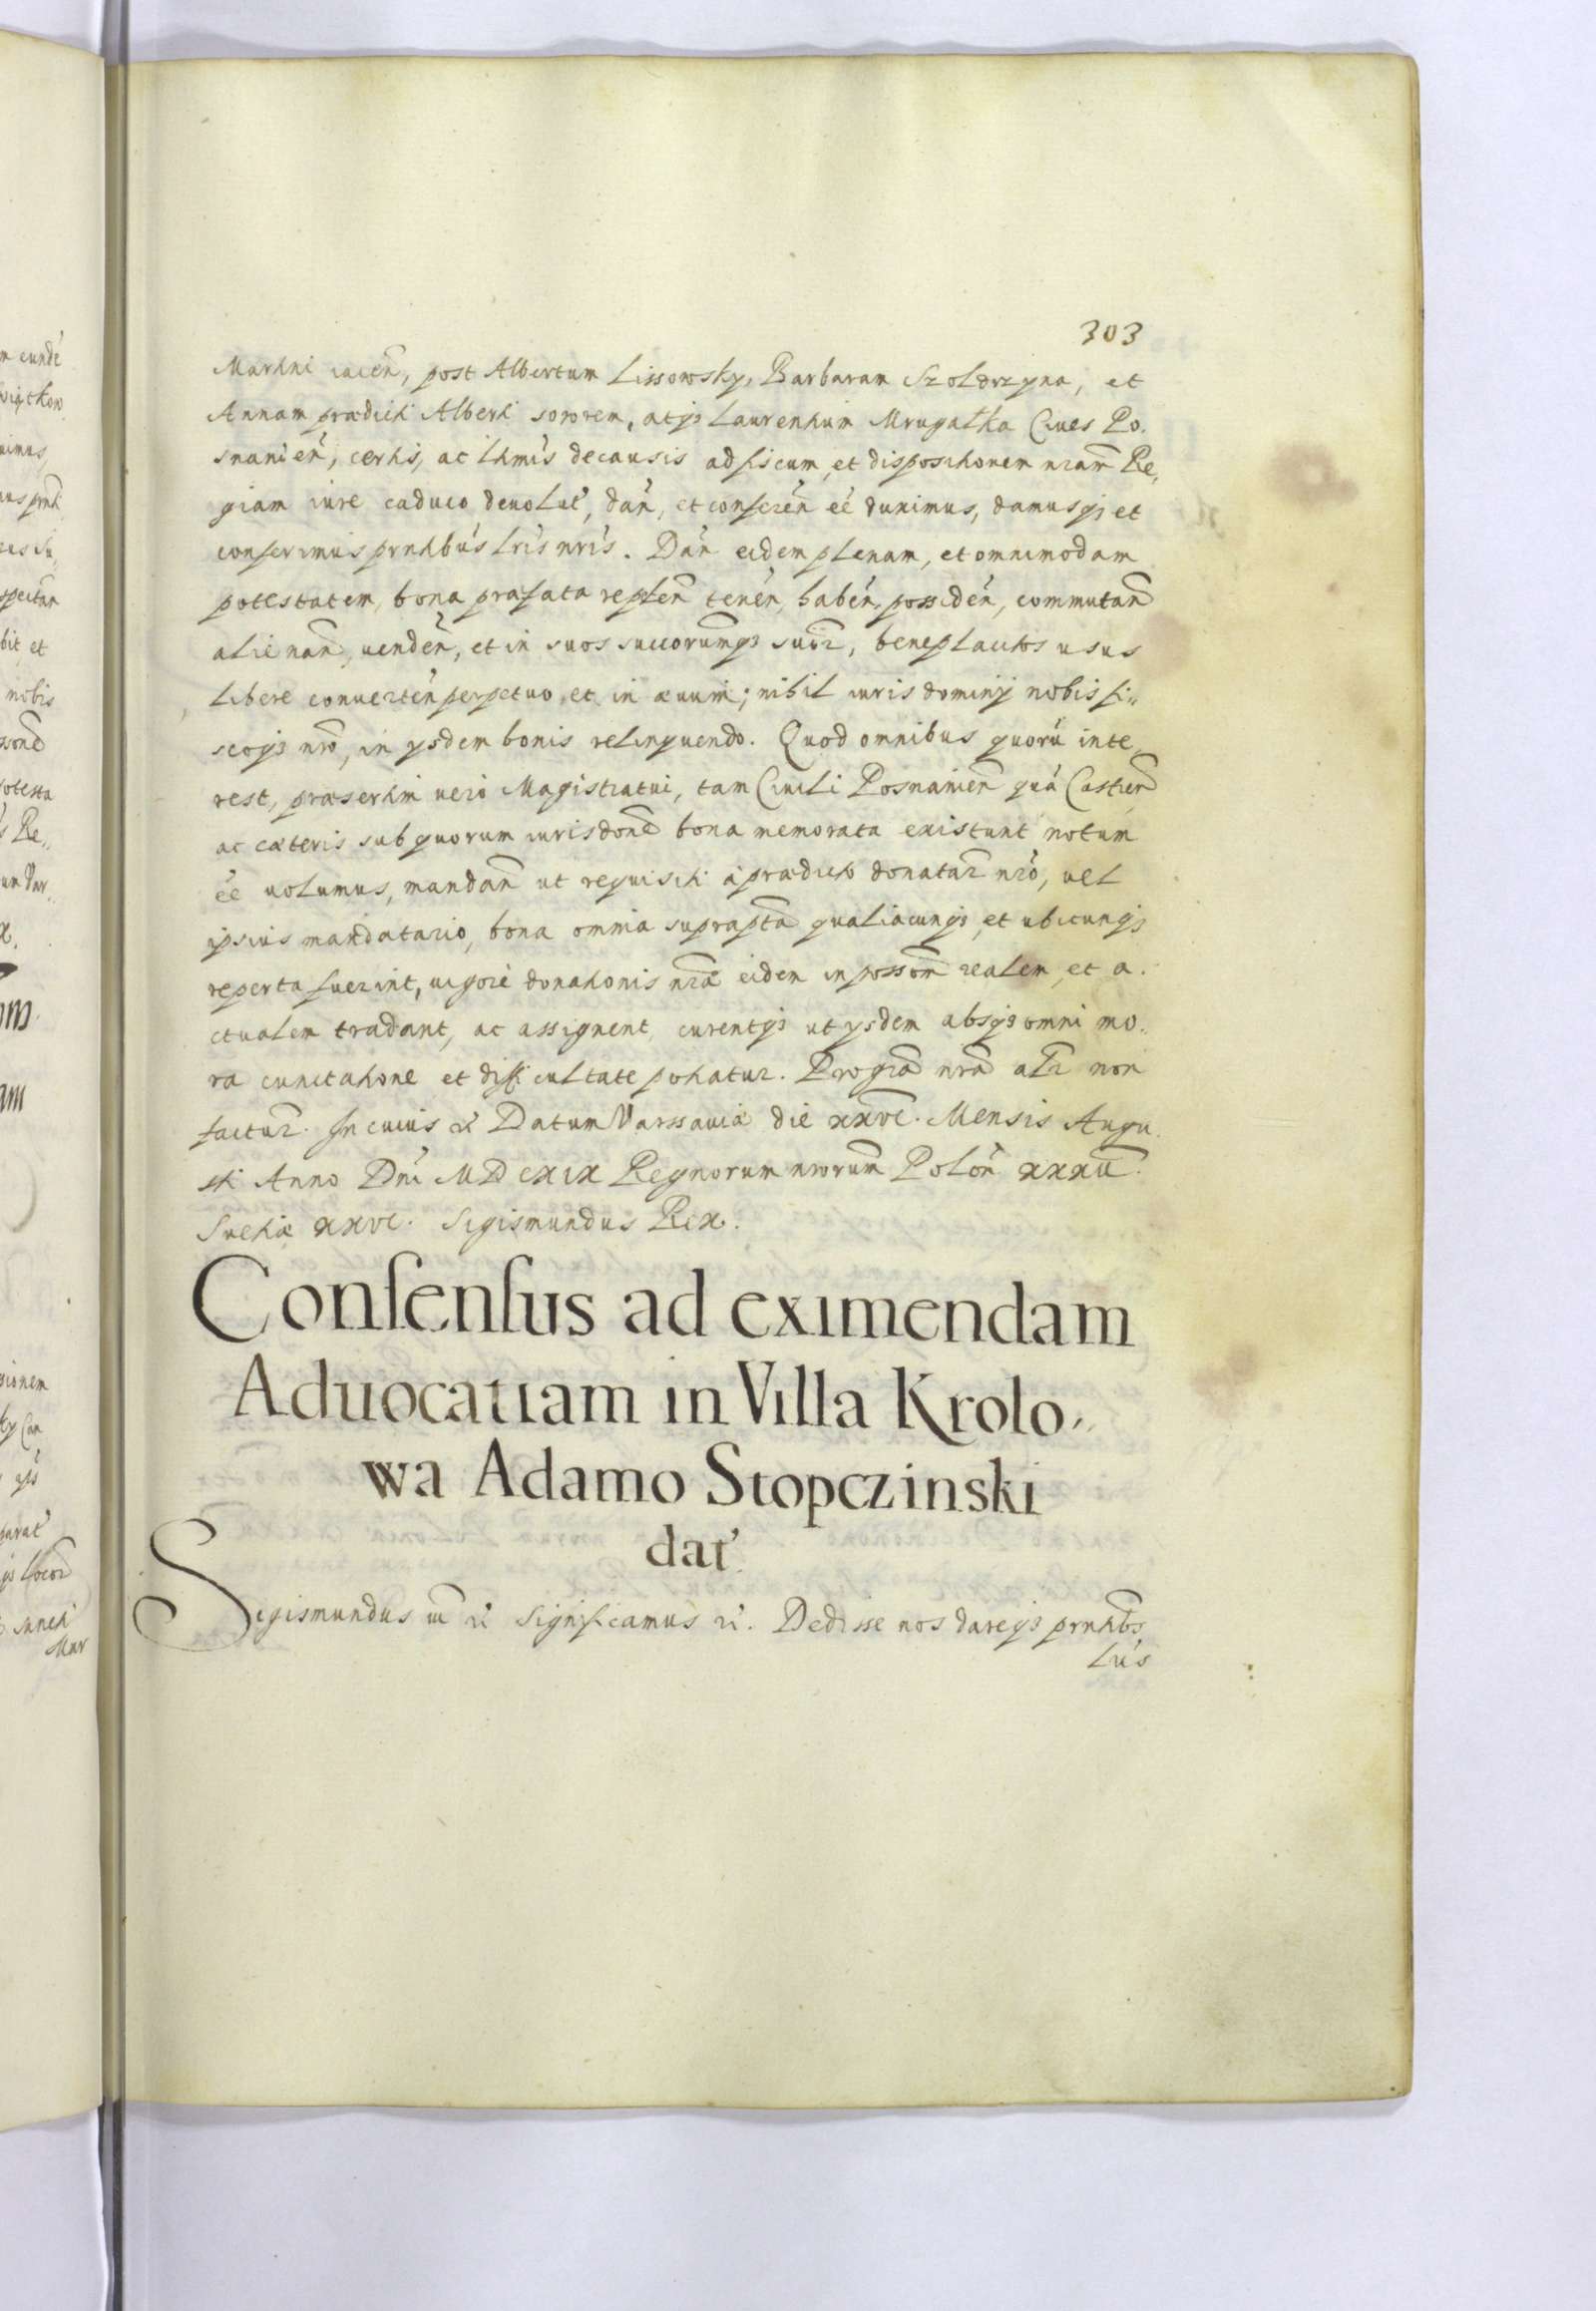 303
Martini iacen̄, post Albertum Lissowsky, Barbaram Szoldrzyna, et
Annam prædicti Alberti sororem, atq; Laurentium Mrugałka Ciues Po.
snanień, certis, ac lt̃mis de causis ad fiscum, et dispositionem nram̃ Re,
giam iure caduco deuolut', dan̄, et conferen̄ eé duximus, damusq; et
conferimus pr̃ntibus lr̃is nr̃is. Dan̄ eidem plenam, et omnimodam
potestatem, bona præfata repten̄ tenen̄, haben̄, possiden̄, commutan̄
alienan̄, uenden̄, et in suos succorum̃q; suor̃, beneplacitos usus
libere conuerten̄ perpetuo, et in æuum; nihil iuris dominij nobis fi,,
scoq; nr̃o, in ijsdem bonis relinquendo. Quod omnibus quorū inte,,
rest, præsertim uero Magistratui, tam Ciuili Posnanien̄ quá Castren̄
ac cæteris sub quorum iurisdone͂ bona memorata existunt notum
eé uolumus, mandan̄ ut requisiti a prædicto donatar̃ nr̃o, uel
ipsius mandatario, bona omnia suprapta͂ qualiacunq;, et ubicunq;
reperta fuerint, uigore donationis nr̃æ eidem in possom͂ realem, et a.
ctualem tradant, ac assignent, curentq; ut ijsdem absq; omni mo..
ra cunctatione et difficultate potiatur. Pro gr̃a nr̃a alr̃ non
factur̃. In cuius & Datum Varssauiæ die xxvi. Mensis Augu.
sti Anno Dn̄i MDCXIX Regnorum nrorum̃ Polon̄ xxxii.
Suetiæ xxvi. Sigismundus Rex.
Consensus ad eximendam
Aduocatiam in Villa Krolo,,
wa Adamo Stopczinski
dat'.
Sigismundus iii & Significamus &. Dedisse nos dareq; prnt̃bs
lr̃is